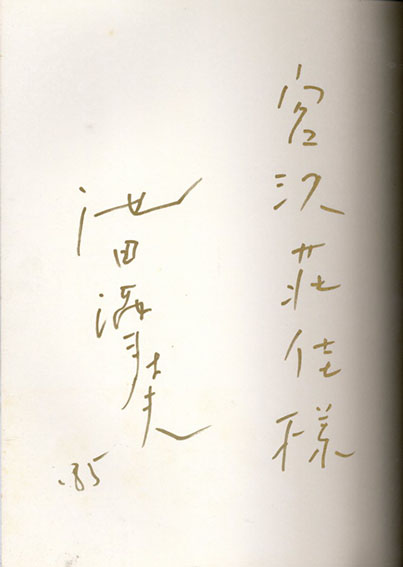 宮沢荘佳様
池田満寿夫
.85